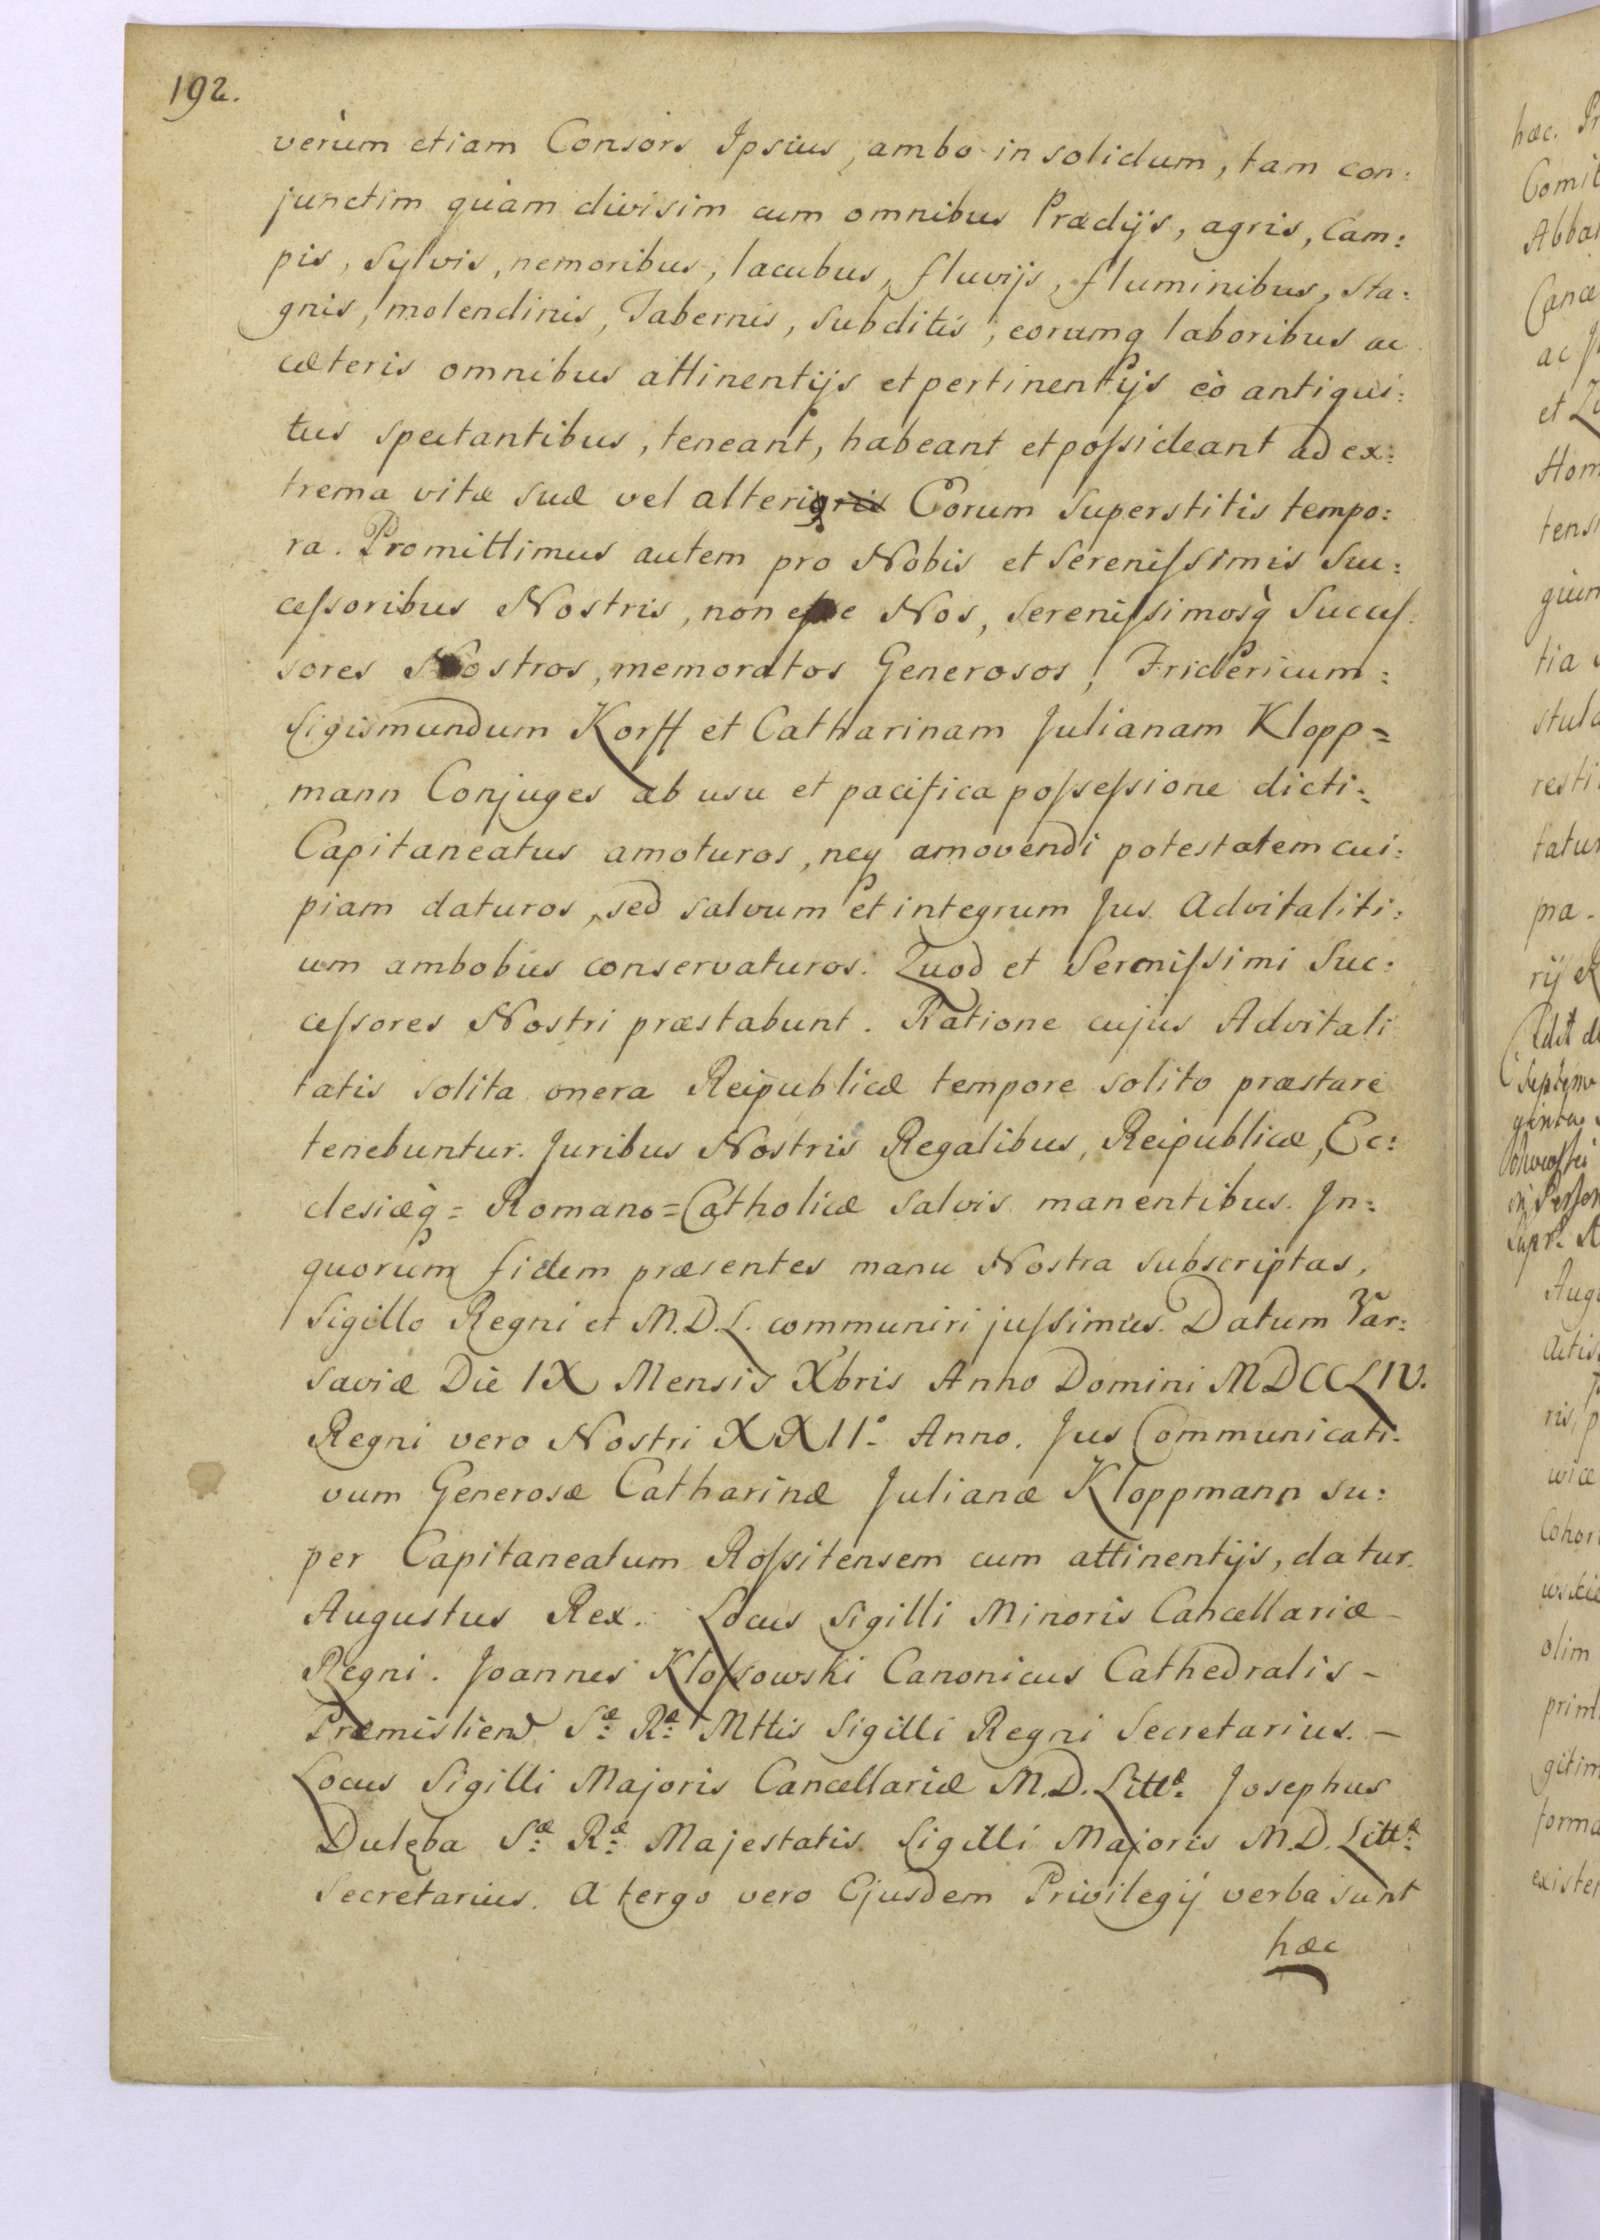 192.
verùm etiam Consors Ipsius, ambo in solidum, tam con:
junctim quàm divisim cum omnibus Prædijs, agris, Cam:
pis, Sylvis, nemoribus, lacubus, fluvijs, fluminibus, sta:
gnis, molendinis, Tabernis, subditis, eorumq laboribus ac
cæteris omnibus attinentijs et pertinentijs eò antiqui:
tus spectantibus, teneant, habeant et poſsideant ad ex:
trema vitæ suæ vel alterius Eorum superstitis tempo:
ra. Promittimus autem pro Nobis et Sereniſsimis Suc:
ceſsoribus Nostris, non eſse Nos, Sereniſsimosq̀ Succeſ:
sores Nostros, memoratos Generosos, Fridericum:
Sigismundum Korff et Catharinam Julianam Klopp=
mann Conjuges ab usu et pacifica poſseſsione dicti:
Capitaneatus amoturos, neq amovendi potestatem cui:
piam daturos, sed salvum et integrum Jus Advitaliti:
um ambobus conservaturos. Quod et Sereniſsimi Suc:
ceſsores Nostri præstabunt. Ratione cujus Advitali
tatis solita onera Reipublicæ tempore solito præstare
tenebuntur. Juribus Nostris Regalibus, Reipublicæ, Ec:
clesiæq̀ = Romano=Catholicæ salvis manentibus. In:
quorum fidem præsentes manu Nostra subscriptas,
Sigillo Regni et M.D.L. communiri juſsimus. Datum Var:
saviæ Die IX Mensis Xbris Anno Domini MDCCLIV.
Regni vero Nostri XXII° Anno. Jus Communicati:
vum Generosæ Catharinæ Julianæ Kloppmann su:
per Capitaneatum Roſsitensem cum attinentijs, datur.
Augustus Rex. Locus Sigilli Minoris Cancellariæ
Regni. Joannes Kloſsowski Canonicus Cathedralis -
Præmislien Sæ Ræ Mttis Sigilli Regni Secretarius. -
Locus Sigilli Majoris Cancellariæ M.D. Littæ Josephus
Dulęba Sæ Ræ Majestatis Sigilli Majoris M.D. Littæ
Secretarius. A tergo vero Ejusdem Privilegij verba sunt
hæc
hæc.
ac
et
tia
pma.
olim